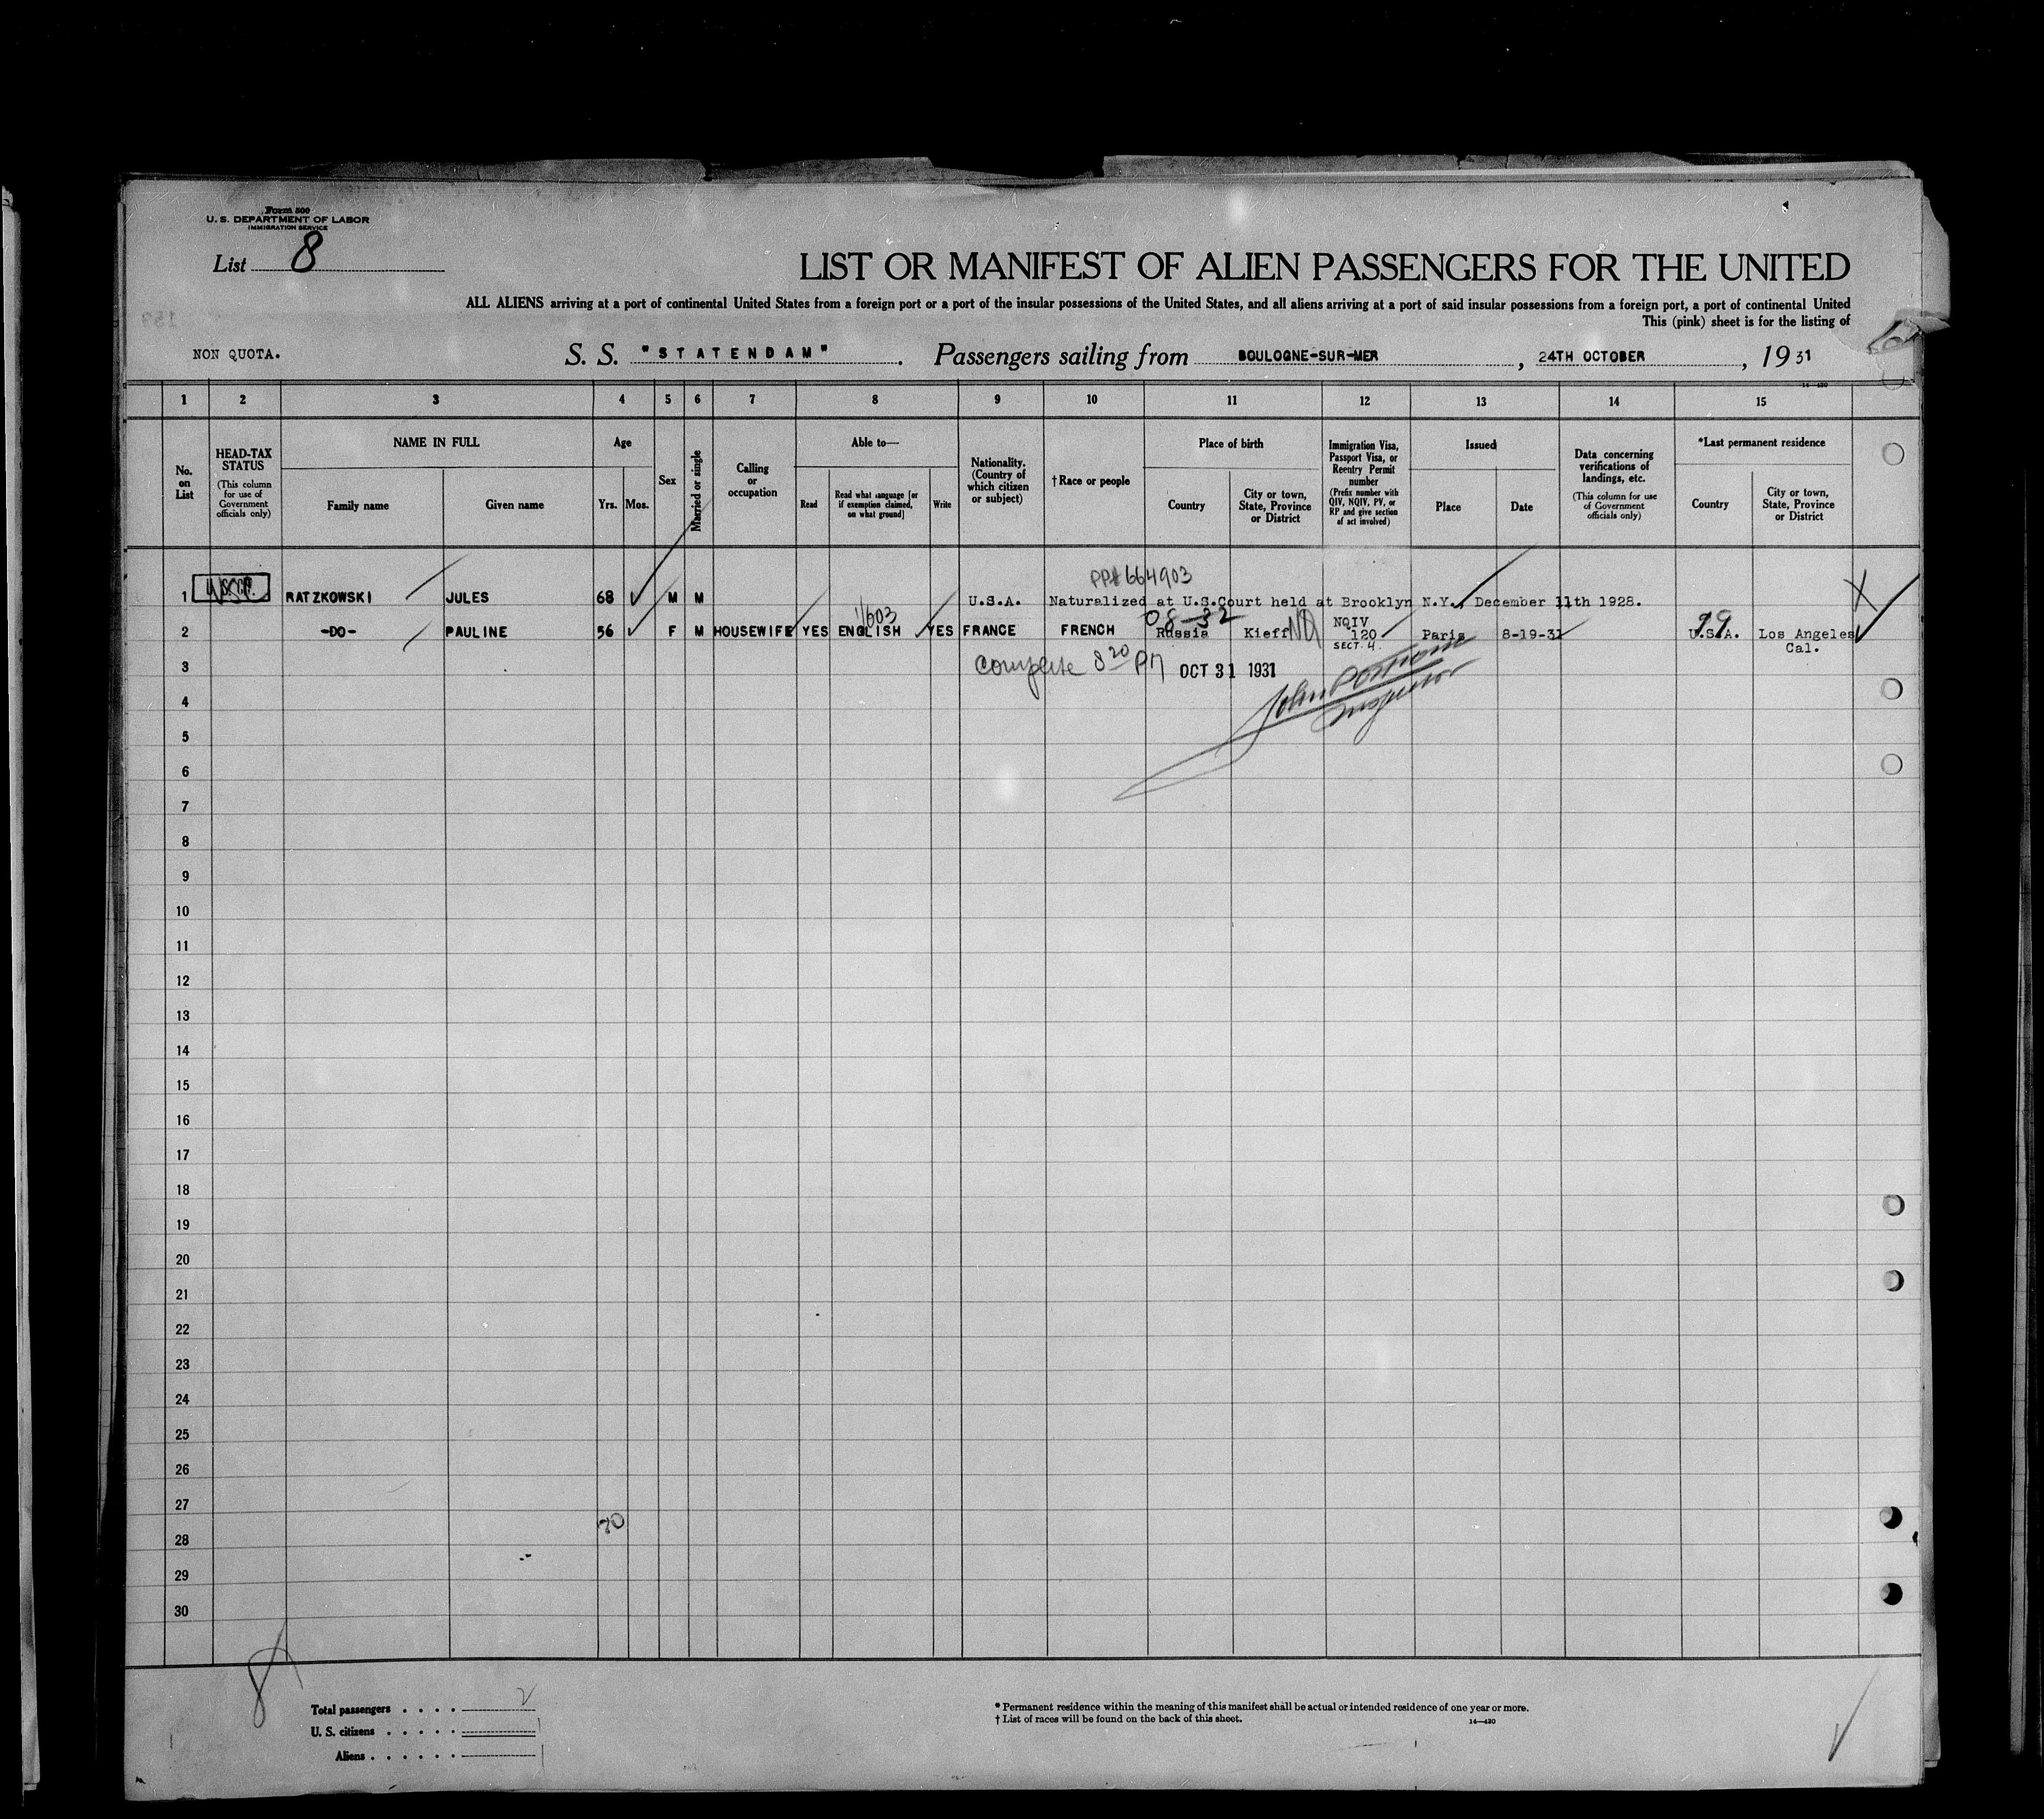 Form 500
U. S. DEPARTMENT OF LABOR
IMMIGRATION SERVICE
List 8
LIST OR MANIFEST OF ALIEN PASSENGERS FOR THE UNITED
ALL ALIENS arriving at a port of continental United States from a foreign port or a port of the insular possessions of the United States, and all aliens arriving at a port of said insular possessions from a foreign port, a port of continental United
This (pink) sheet is for the listing of
NON QUOTA. S. S. "STATENDAM". Passengers sailing from BOULOGNE-SUR-MER, 24TH OCTOBER, 1931
14-430
1 2 3 4 5 6 7 8 9 10 11 12 13 14 15
No. on List
HEAD-TAX STATUS (This column for use of Government officials only)
NAME IN FULL
Family name
Given name
Age
Yrs.
Mos.
Sex
Married or single
Calling or occupation
Able to—
Read
Read what language [or if exemption claimed, on what ground]
Write
Nationality. (Country of which citizen or subject)
†Race or people
Place of birth
Country
City or town, State, Province or District
Immigration Visa, Passport Visa, or Reentry Permit number (Prefix number with QIV, NQIV, PV, or RP and give section of act involved)
Issued
Place
Date
Data concerning verifications of landings, etc. (This column for use of Government officials only)
*Last permanent residence
Country
City or town, State, Province or District
PP# 664903
1 RATZKOWSKI JULES 68 M M U.S.A. Naturalized at U.S.Court held at Brooklyn N.Y., December 11th 1928.
11603 08-32 99
2 -DO- PAULINE 56 F M HOUSEWIFE YES ENGLISH YES FRANCE FRENCH Russia Kieff NQ NQIV 120 SECT. 4. Paris 8-19-31 U.S.A. Los Angeles Cal.
3 Complete 8 20 PM OCT 31 1931
4
5
6
7
8
9
10
11
12
13
14
15
16
17
18
19
20
21
22
23
24
25
26
27
70
28
29
30
8
Total passengers . . . .
U. S. citizens . . . . .
Aliens . . . . . .
* Permanent residence within the meaning of this manifest shall be actual or intended residence of one year or more.
† List of races will be found on the back of this sheet.
14—430